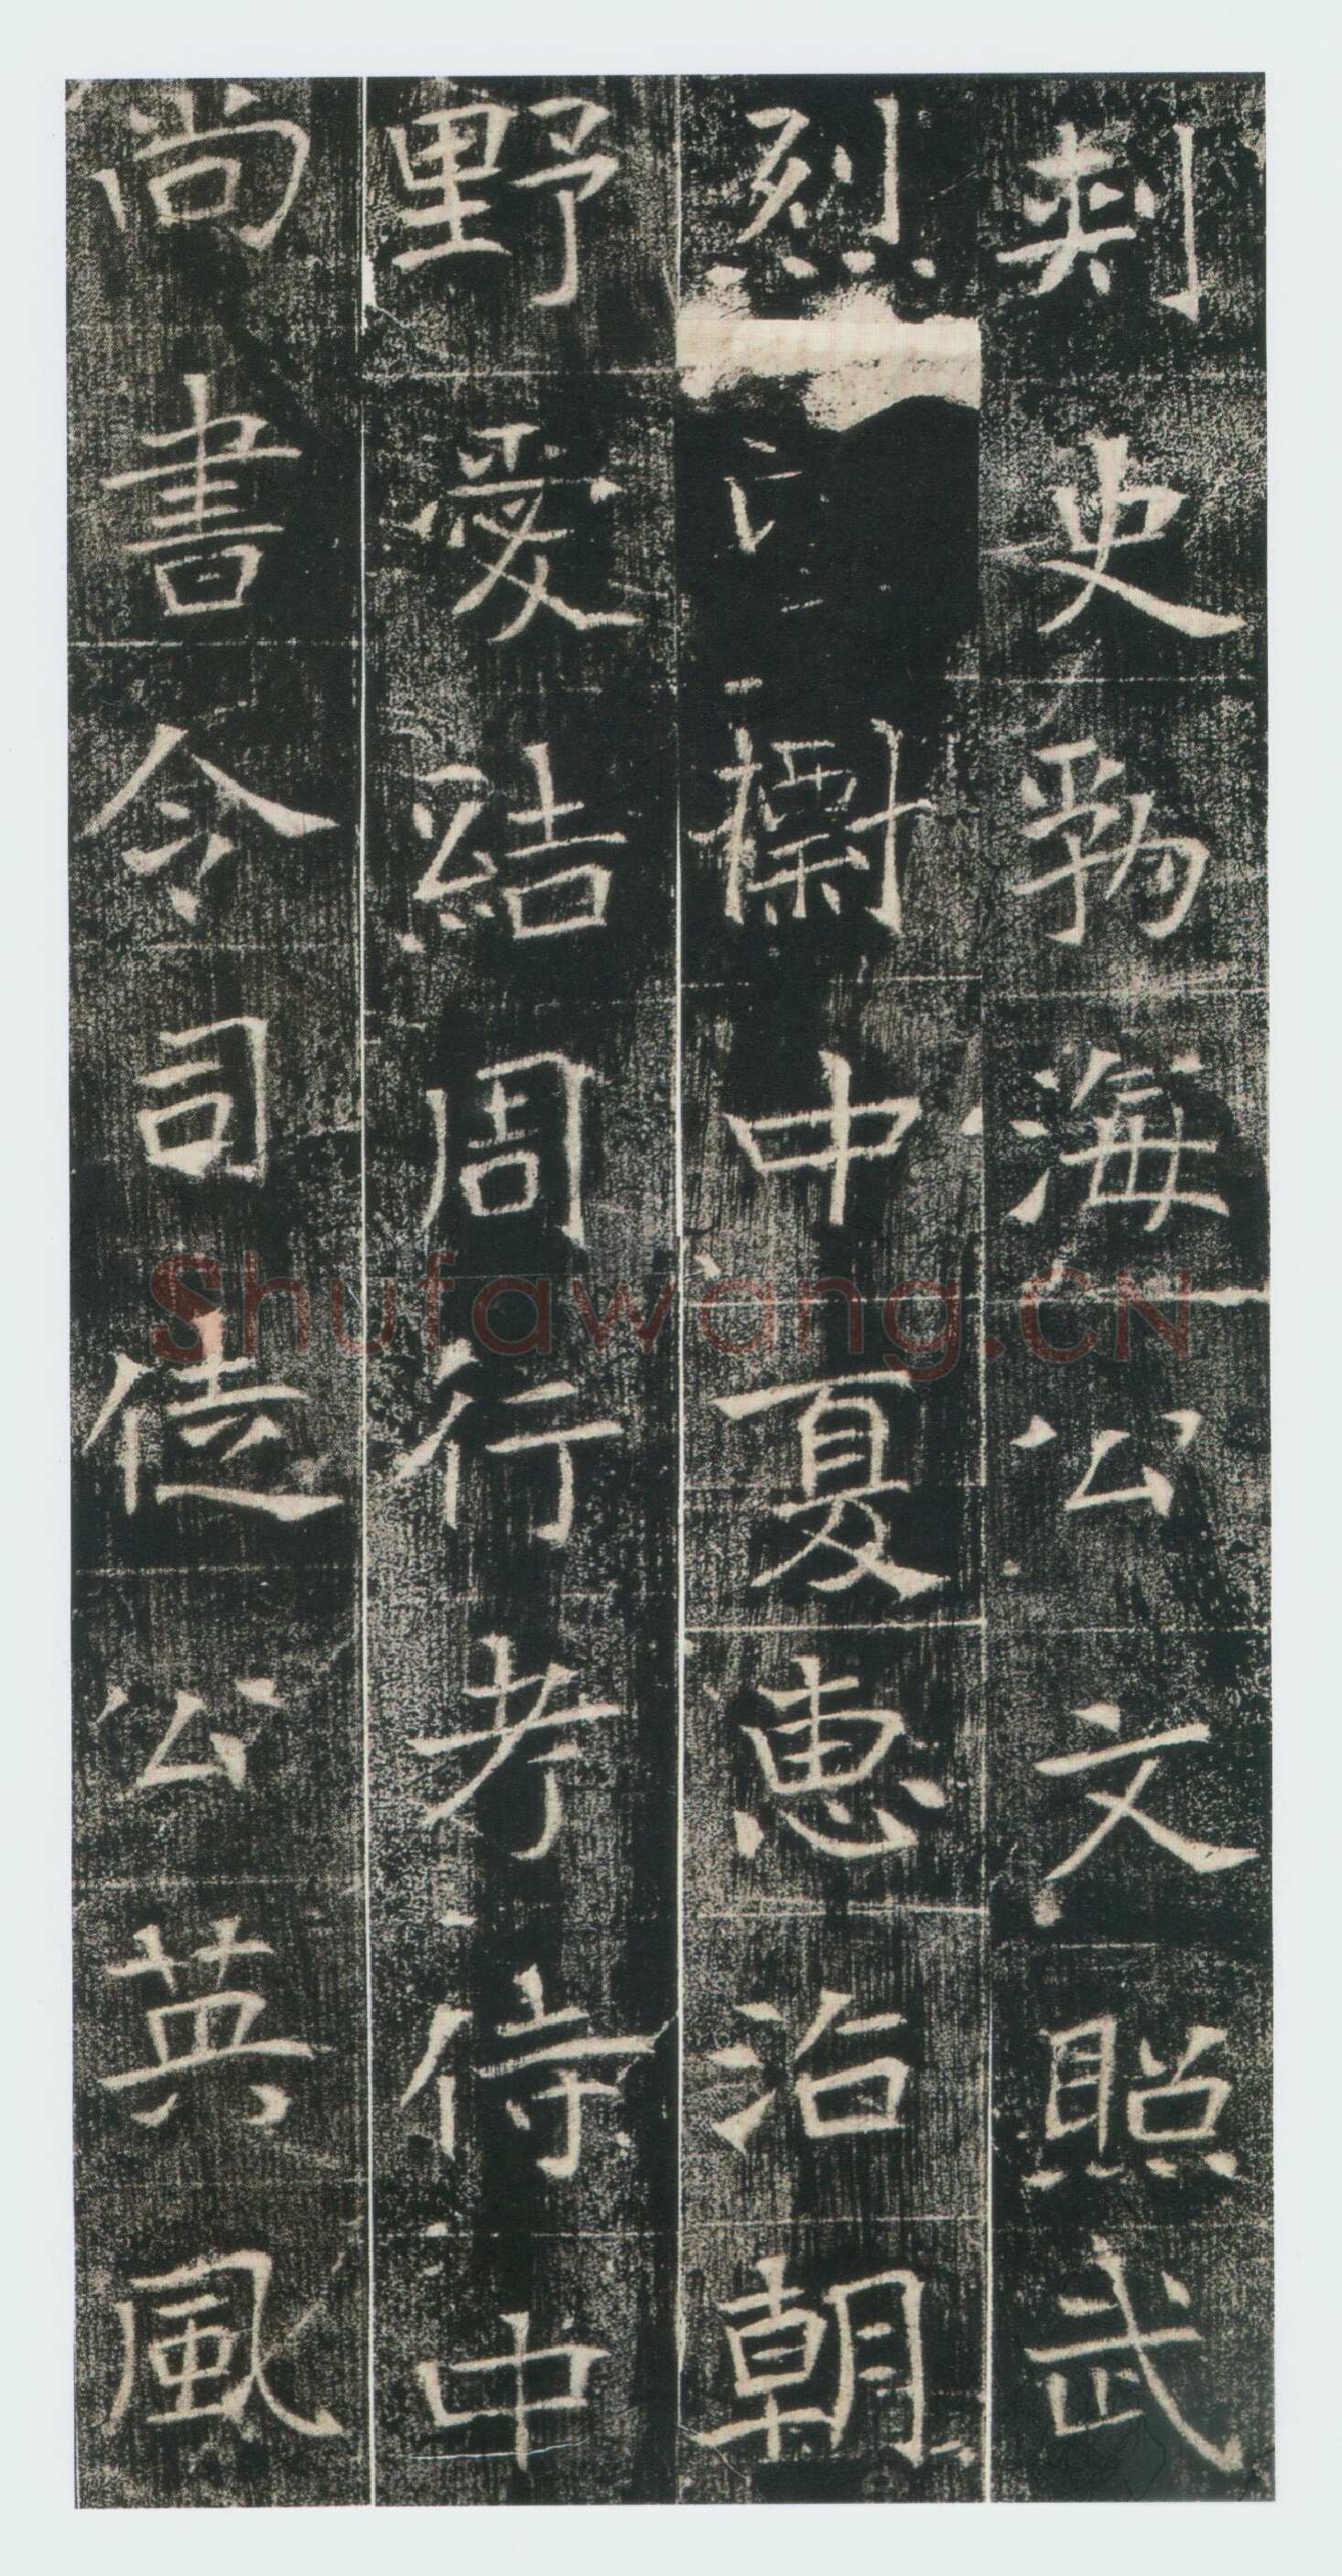 刺史勃海公文照武
烈中夏惠治朝
野愛結周行考侍中
尚書令司徒公英風
Shufawang.CN